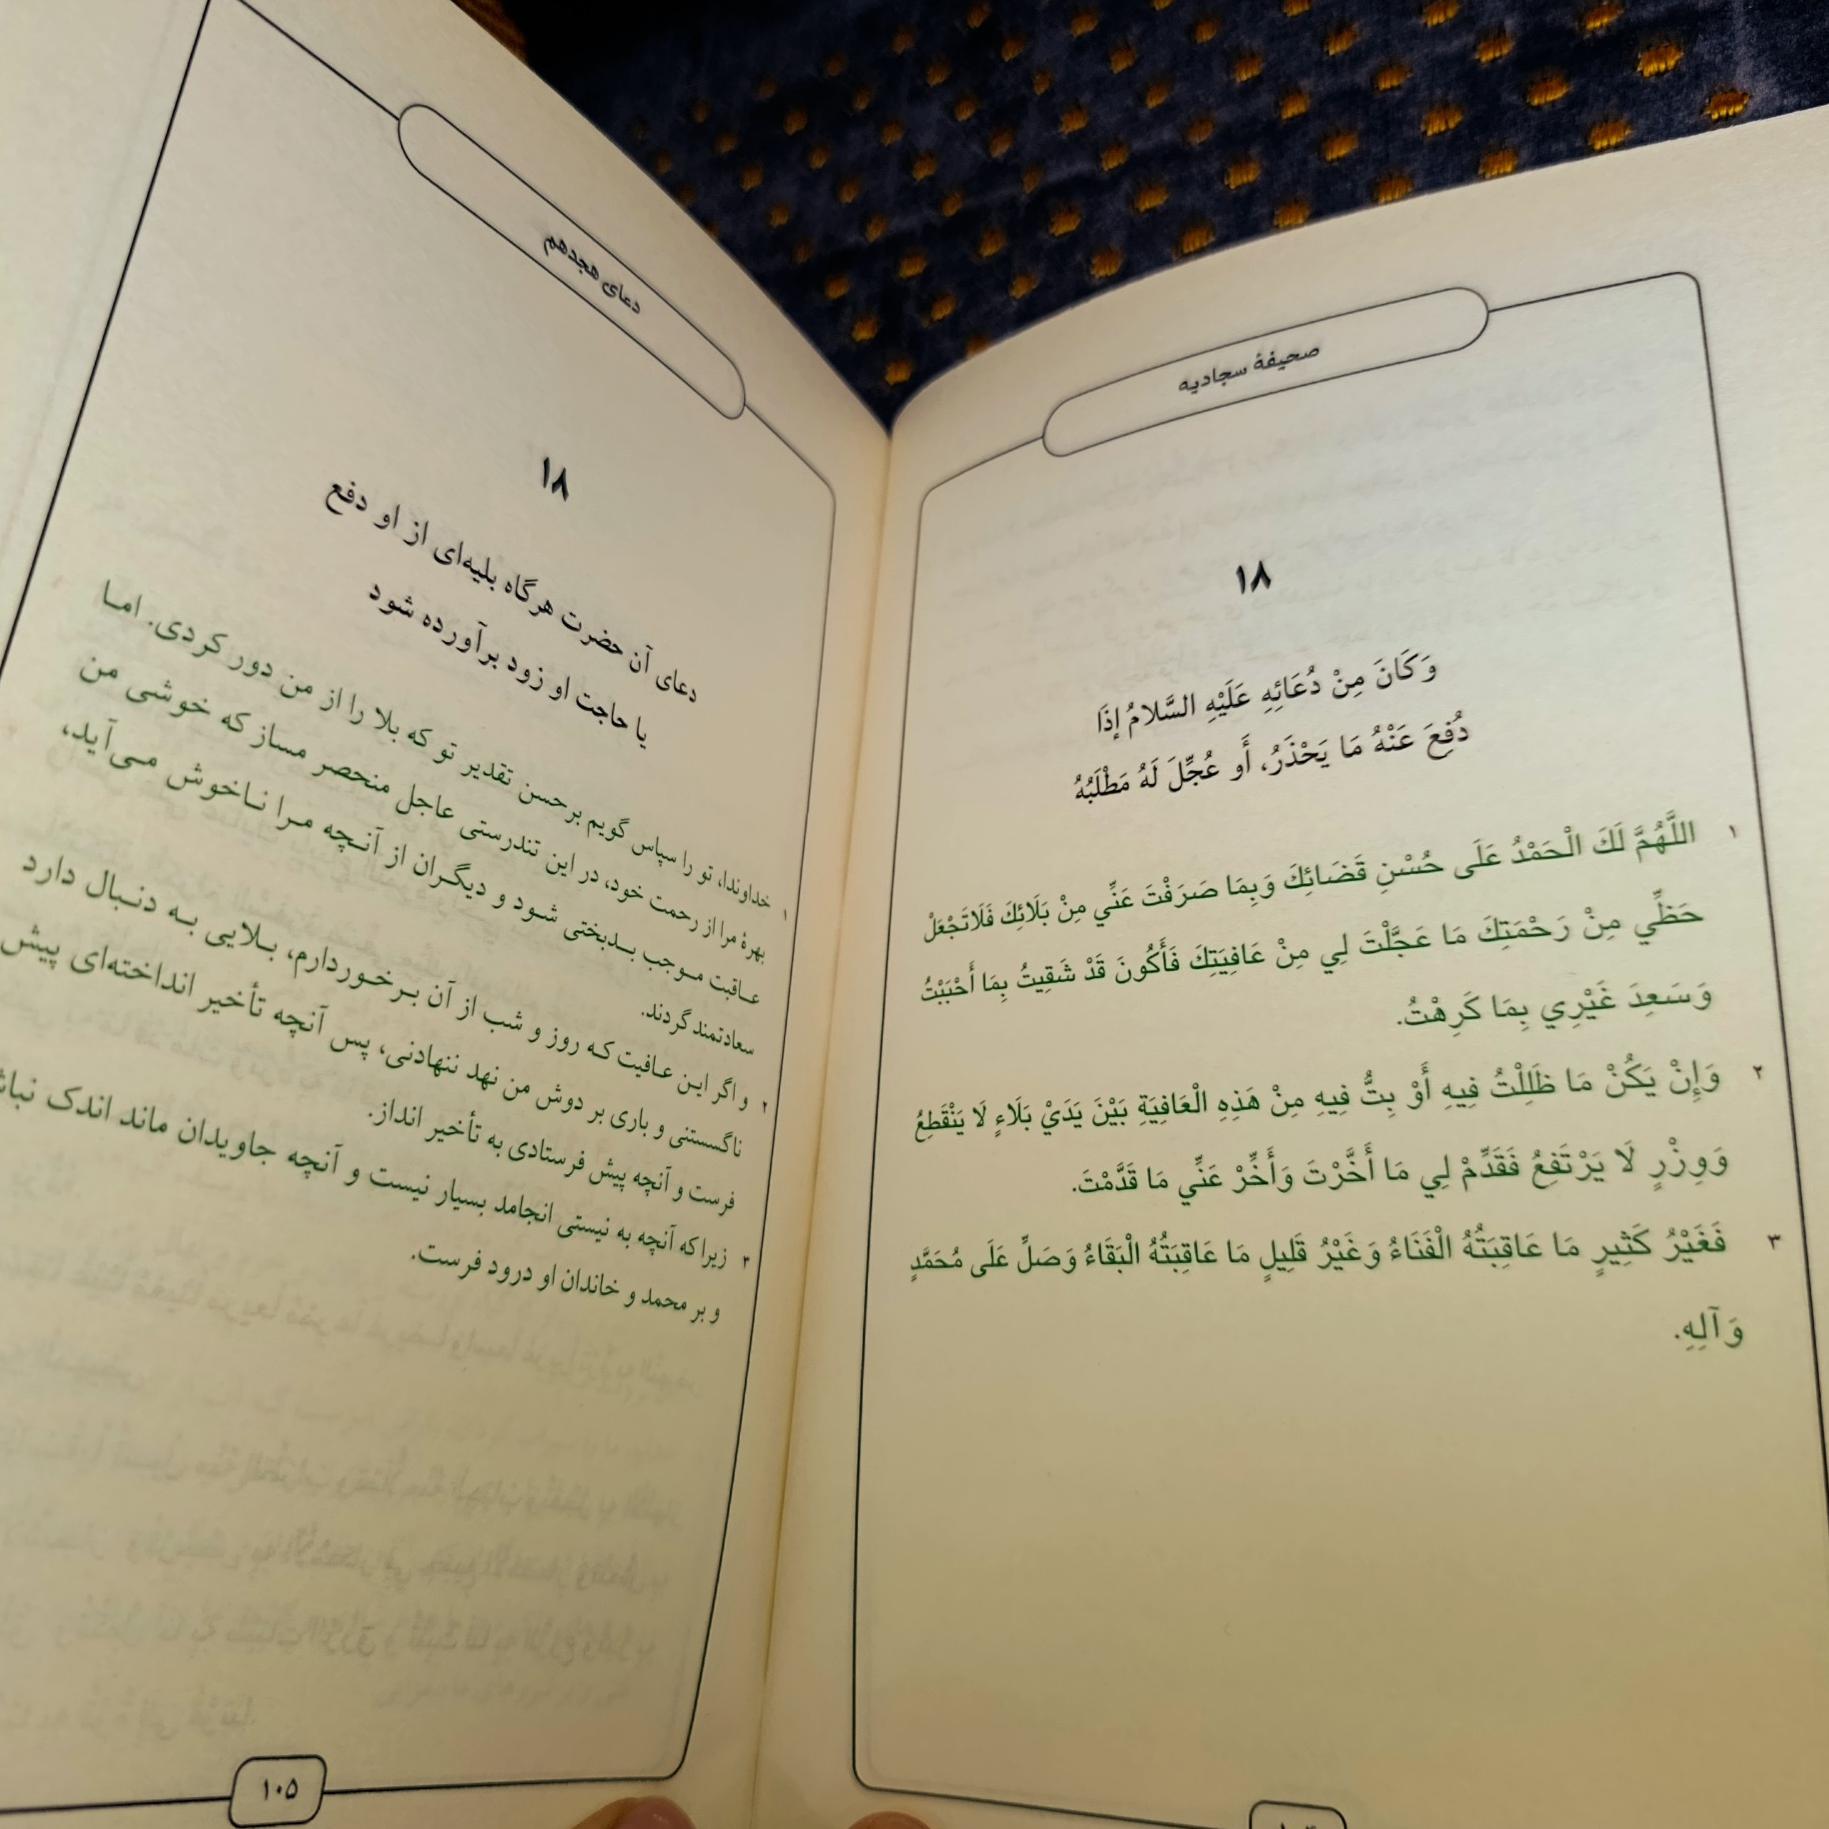 صحیفهٔ سجادیه
۱۸
وَكَانَ مِنْ دُعَائِهِ عَلَيْهِ السَّلامُ إذَا
دُفِعَ عَنْهُ مَا يَحْذَرُ، أَو عُجِّلَ لَهُ مَطْلَبُهُ
۱ اللَّهُمَّ لَكَ الْحَمْدُ عَلَى حُسْنِ قَضَائِكَ وَبِمَا صَرَفْتَ عَنِّي مِنْ بَلَائِكَ فَلَاتَجْعَلْ
حَظِّي مِنْ رَحْمَتِكَ مَا عَجَّلْتَ لِي مِنْ عَافِيَتِكَ فَأَكُونَ قَدْ شَقِيتُ بِمَا أَحْبَبْتُ
وَسَعِدَ غَيْرِي بِمَا كَرِهْتُ.
۲ وَإِنْ يَكُنْ مَا ظَلِلْتُ فِيهِ أَوْ بِتُّ فِيهِ مِنْ هَذِهِ الْعَافِيَةِ بَيْنَ يَدَيْ بَلَاءٍ لَا يَنْقَطِعُ
وَوِزْرٍ لَا يَرْتَفِعُ فَقَدِّمْ لِي مَا أَخَّرْتَ وَأَخِّرْ عَنِّي مَا قَدَّمْتَ.
۳ فَغَيْرُ كَثِيرٍ مَا عَاقِبَتُهُ الْفَنَاءُ وَغَيْرُ قَلِيلٍ مَا عَاقِبَتُهُ الْبَقَاءُ وَصَلِّ عَلَى مُحَمَّدٍ
وَآلِهِ.
دعای هجدهم
۱۸
دعای آن حضرت هرگاه بلیه‌ای از او دفع
یا حاجت او زود برآورده شود
۱ خداوندا، تو را سپاس گویم بر حسن تقدیر تو که بلا را از من دور کردی. اما
بهرهٔ مرا از رحمت خود، در این تندرستی عاجل منحصر مساز که خوشی من
عاقبت موجب بدبختی شود و دیگران از آنچه مرا ناخوش می‌آید،
سعادتمند گردند.
۲ و اگر این عافیت که روز و شب از آن برخوردارم، بلایی به دنبال دارد
ناگسستنی و باری بر دوش من نهد ننهادنی، پس آنچه تأخیر انداخته‌ای پیش
فرست و آنچه پیش فرستادی به تأخیر انداز.
۳ زیرا که آنچه به نیستی انجامد بسیار نیست و آنچه جاویدان ماند اندک
و بر محمد و خاندان او درود فرست.
۱۰۵